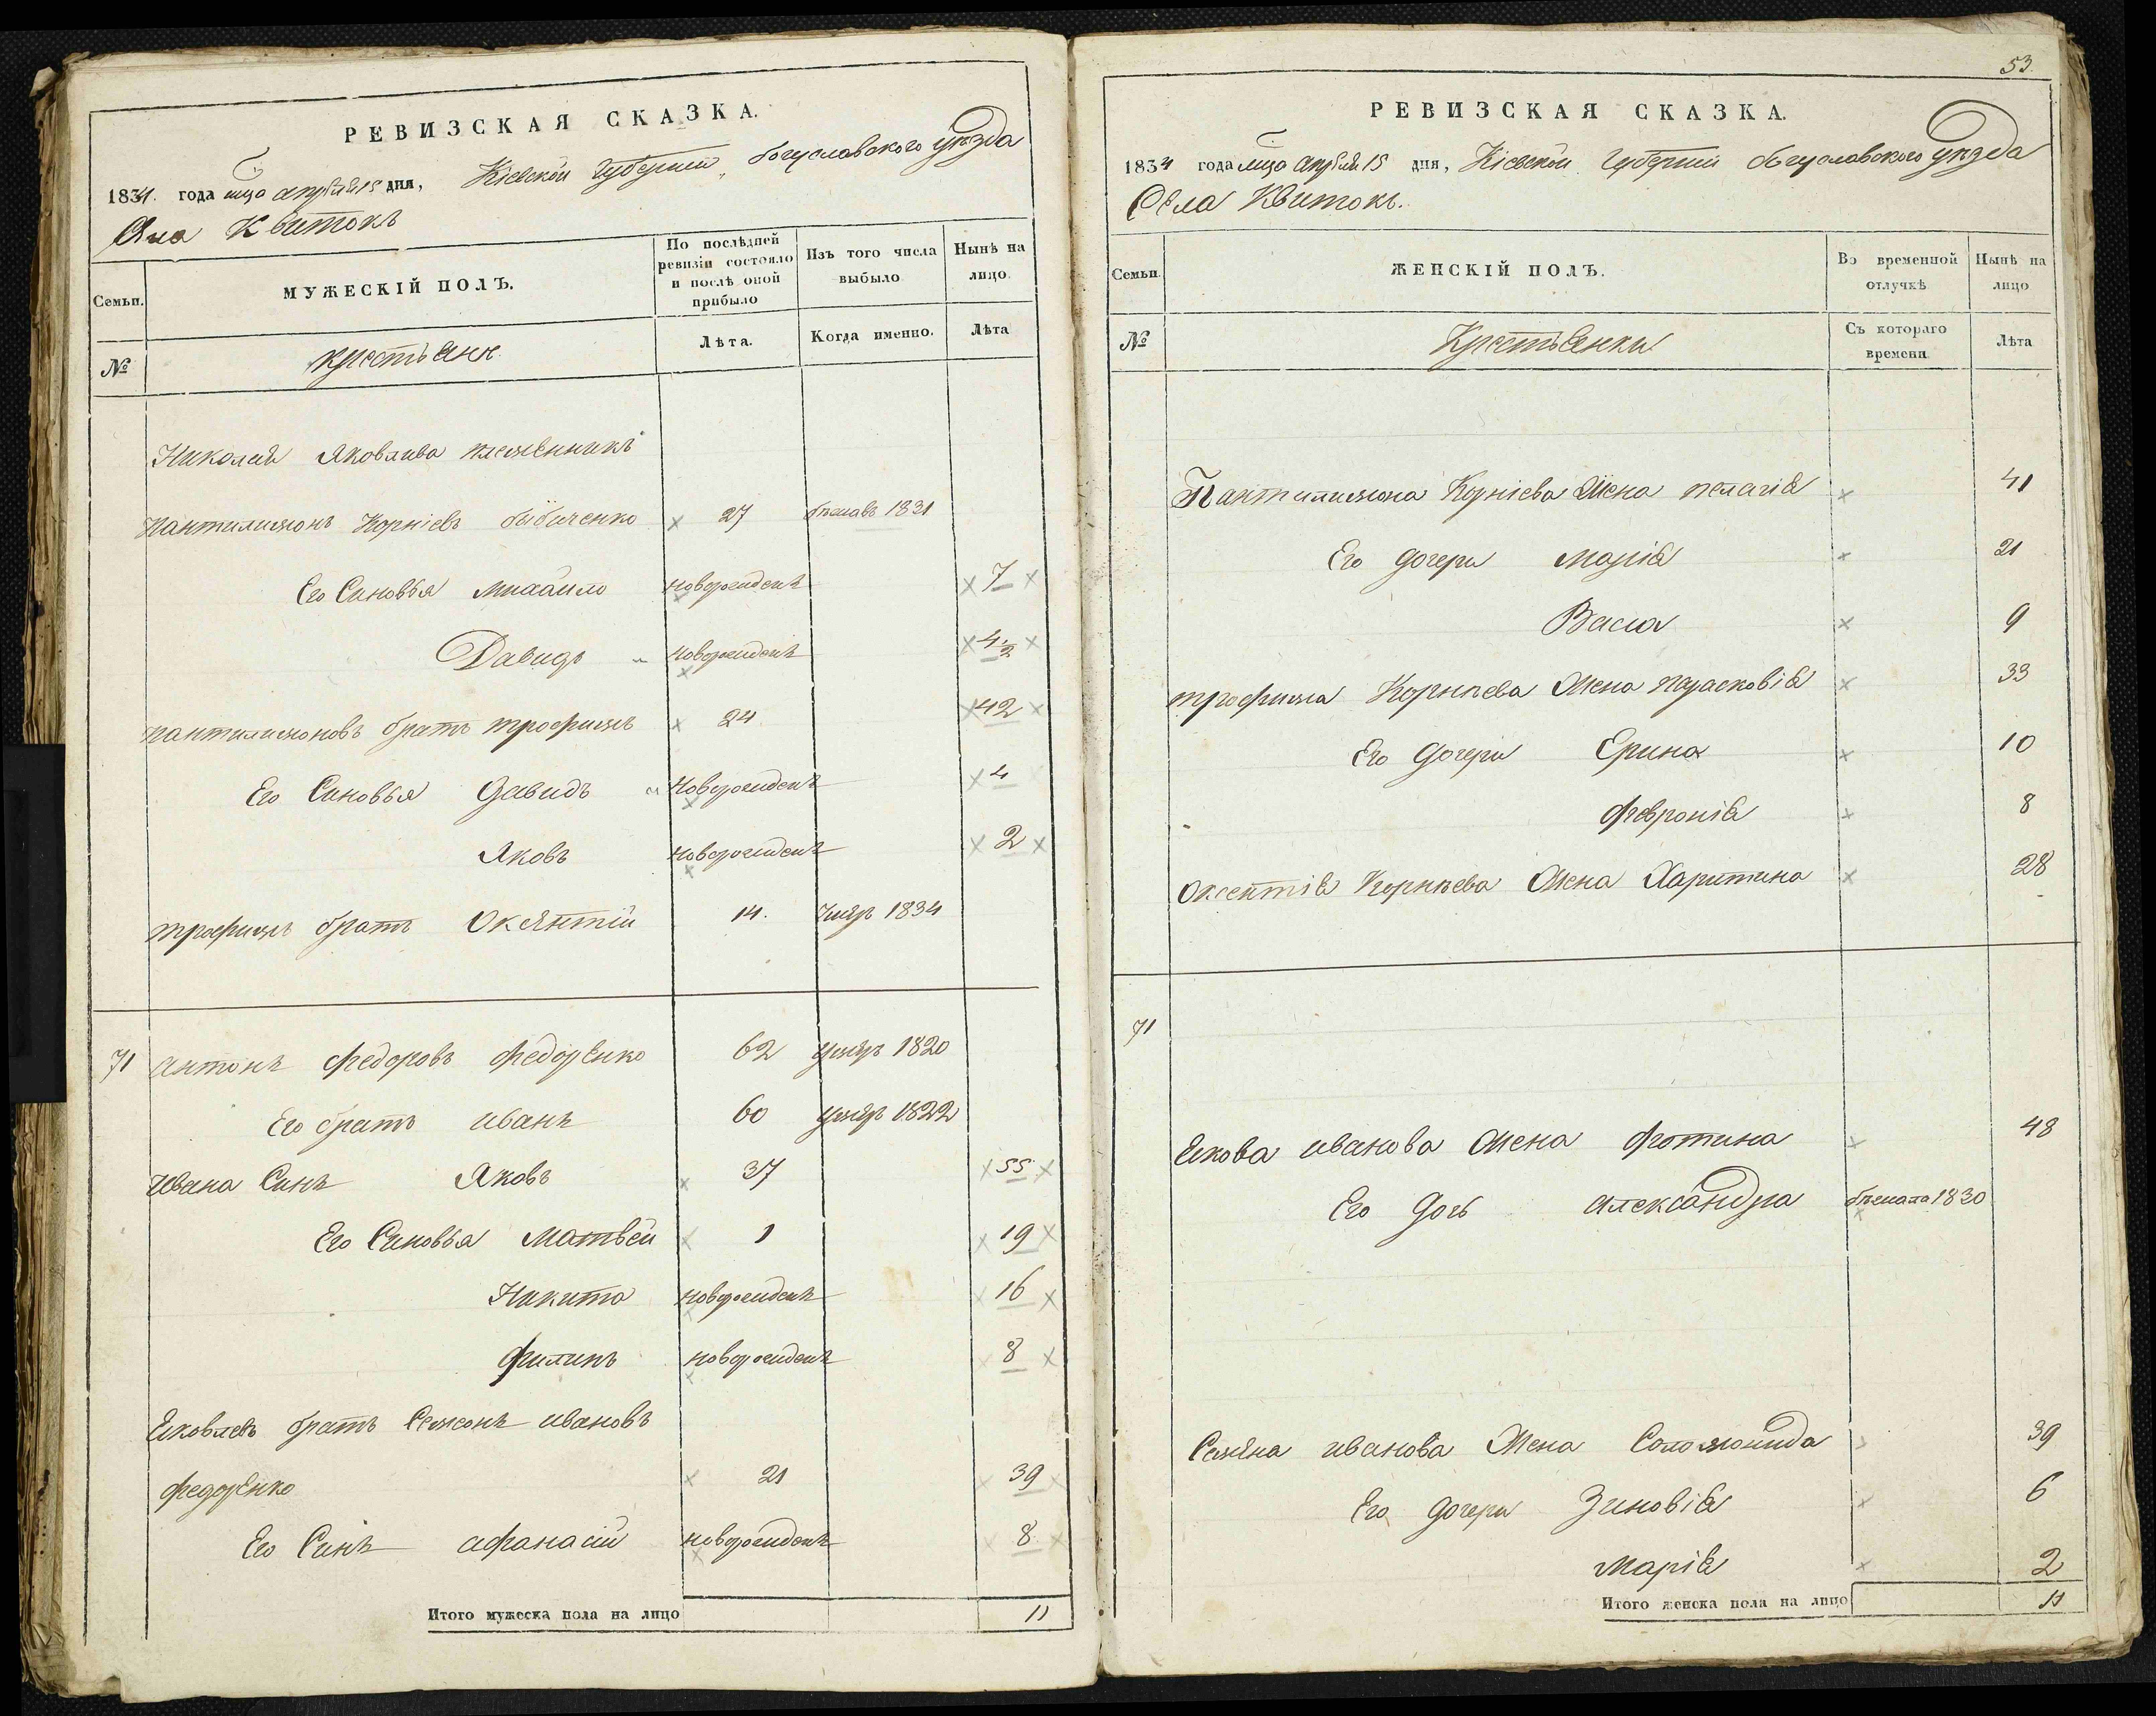 РЕВИЗСКАЯ СКАЗКА.
1834. года мца апрѣля 15 дня, Кіевской Губерніи, богуславского уѣзда
Села Квитокъ
Семьи.
МУЖЕСКІЙ ПОЛЪ.
По послѣдней ревизіи состояло и послѣ оной прибыло
Изъ того числа выбыло
Нынѣ на лицо.
№
крестьяне
Лѣта.
Когда именно.
Лѣта
Николая Яковлива племенникъ
Пантилимонъ Корніевъ бибиченко 27 бѣжавъ 1831
Его Синовья Михайло новорожденъ 7
Давидъ новорожденъ 4 1/2
пантилимоновъ братъ трофимъ 24 42
Его Синовья Давидъ новорожденъ 4
Яковъ новорожденъ 2
трофимъ братъ Оксянтій 14. 1834
71 антонъ федоровъ федоренко 62 умеръ 1820
Его братъ иванъ 60 умеръ 1822
Ивана Синъ Яковъ 37 55
Его Синовья Матвей 1 19
Никита новорожденъ 16
филипъ новорожденъ 8
Яковлевъ братъ Семонъ ивановъ
федоренко 21 39
Его Синъ афанасій новорожденъ 8.
Итого мужеска пола на лицо 11
53.
РЕВИЗСКАЯ СКАЗКА.
1834 года мца апрѣля 15 дня, Кіевской Губерніи богуславского уѣзда
Села Квитокъ.
Семьи.
ЖЕНСКІЙ ПОЛЪ.
Во временной отлучкѣ
Нынѣ на лицо
№
Крестьянки
Съ котораго времени
Лѣта
Пантилимона Корніева Жена пелагія 41
Его дочери марія 21
Васса 9
трофима Корнѣева Жена парасковія 33
Его Дочери Ерина 10
февронія 8
Оксентія Корнѣева Жена Харитина 28
71
Якова иванова Жена фотина 48
Его Дочь александра бѣжала 1830
Семена иванова Жена Соломонида 39
Его дочери Зиновія 6
Марія 2
Итого женска пола на лицо 11